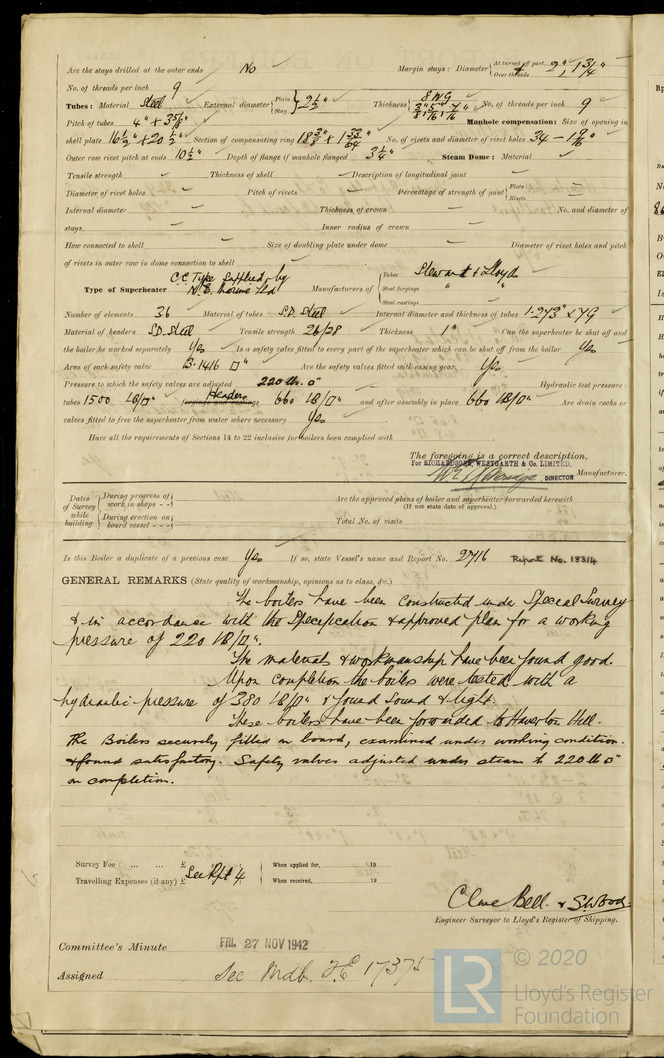 Are the stays drilled at the outer ends No Margin stays: Diameter { At turned off part, 2" 1 3/4"
Over threads
No. of threads per inch 9
Tubes: Material Steel External diameter { Plain Stay } 2 1/2" Thickness { 8 WG 3/8" 5/16" 7/16" No. of threads per inch 9
Pitch of tubes 4" x 3 5/8" Manhole compensation: Size of opening in
shell plate 16 1/2" x 20 1/2" Section of compensating ring 18 3/8" x 1 33/64" No. of rivets and diameter of rivet holes 34 - 1 9/16"
Outer row rivet pitch at ends 10 1/2" Depth of flange if manhole flanged 3 1/4" Steam Dome: Material
Tensile strength Thickness of shell Description of longitudinal joint
Diameter of rivet holes Pitch of rivets Percentage of strength of joint { Plate Rivets
Internal diameter Thickness of crown No. and diameter of
stays Inner radius of crown
How connected to shell Size of doubling plate under dome Diameter of rivet holes and pitch
of rivets in outer row in dome connection to shell
Type of Superheater C.E. Type Supplied by N.E. Marine Ltd Manufacturers of { Tubes Stewart & Lloyd
Steel forgings "
Steel castings "
Number of elements 36 Material of tubes S.D. Steel Internal diameter and thickness of tubes 1.273" x 7G
Material of headers S.D. Steel Tensile strength 26/28 Thickness 1" Can the superheater be shut off and
the boiler be worked separately Yes Is a safety valve fitted to every part of the superheater which can be shut off from the boiler Yes
Area of each safety valve 3.1416 □" Are the safety valves fitted with easing gear Yes
Pressure to which the safety valves are adjusted 220 lb. □" Hydraulic test pressure:
tubes 1500 LB/□" Headers 660 LB/□" and after assembly in place 660 LB/□" Are drain cocks or
valves fitted to free the superheater from water where necessary Yes
Have all the requirements of Sections 14 to 22 inclusive for boilers been complied with
The foregoing is a correct description,
For RICHARDSONS, WESTGARTH & Co. LIMITED,
DIRECTOR Manufacturer.
Dates of Survey while building { During progress of work in shops - - } Are the approved plans of boiler and superheater forwarded herewith
(If not state date of approval.)
{ During erection on board vessel - - - } Total No. of visits
Is this Boiler a duplicate of a previous case Yes If so, state Vessel's name and Report No. 2716 Report No. 18314
GENERAL REMARKS (State quality of workmanship, opinions as to class, &c.)
The boilers have been constructed under Special Survey
& in accordance with the Specification & approved plan for a working
pressure of 220 LB/□".
The materials & workmanship have been found good.
Upon completion the boilers were tested with a
hydraulic pressure of 380 LB/□" & found sound & tight.
These boilers have been forwarded to Haverton Hill.
The Boilers securely fitted on board, examined under working condition.
& found satisfactory. Safety valves adjusted under steam to 220 lb □"
on completion.
Survey Fee ... ... £ See Rpt 4 When applied for, 19
Travelling Expenses (if any) £ When received, 19
Clive Bell. & S. Wood.
Engineer Surveyor to Lloyd's Register of Shipping.
Committee's Minute FRI. 27 NOV 1942
Assigned See Mdb. F.E 17375
LR
© 2020
Lloyd's Register
Foundation